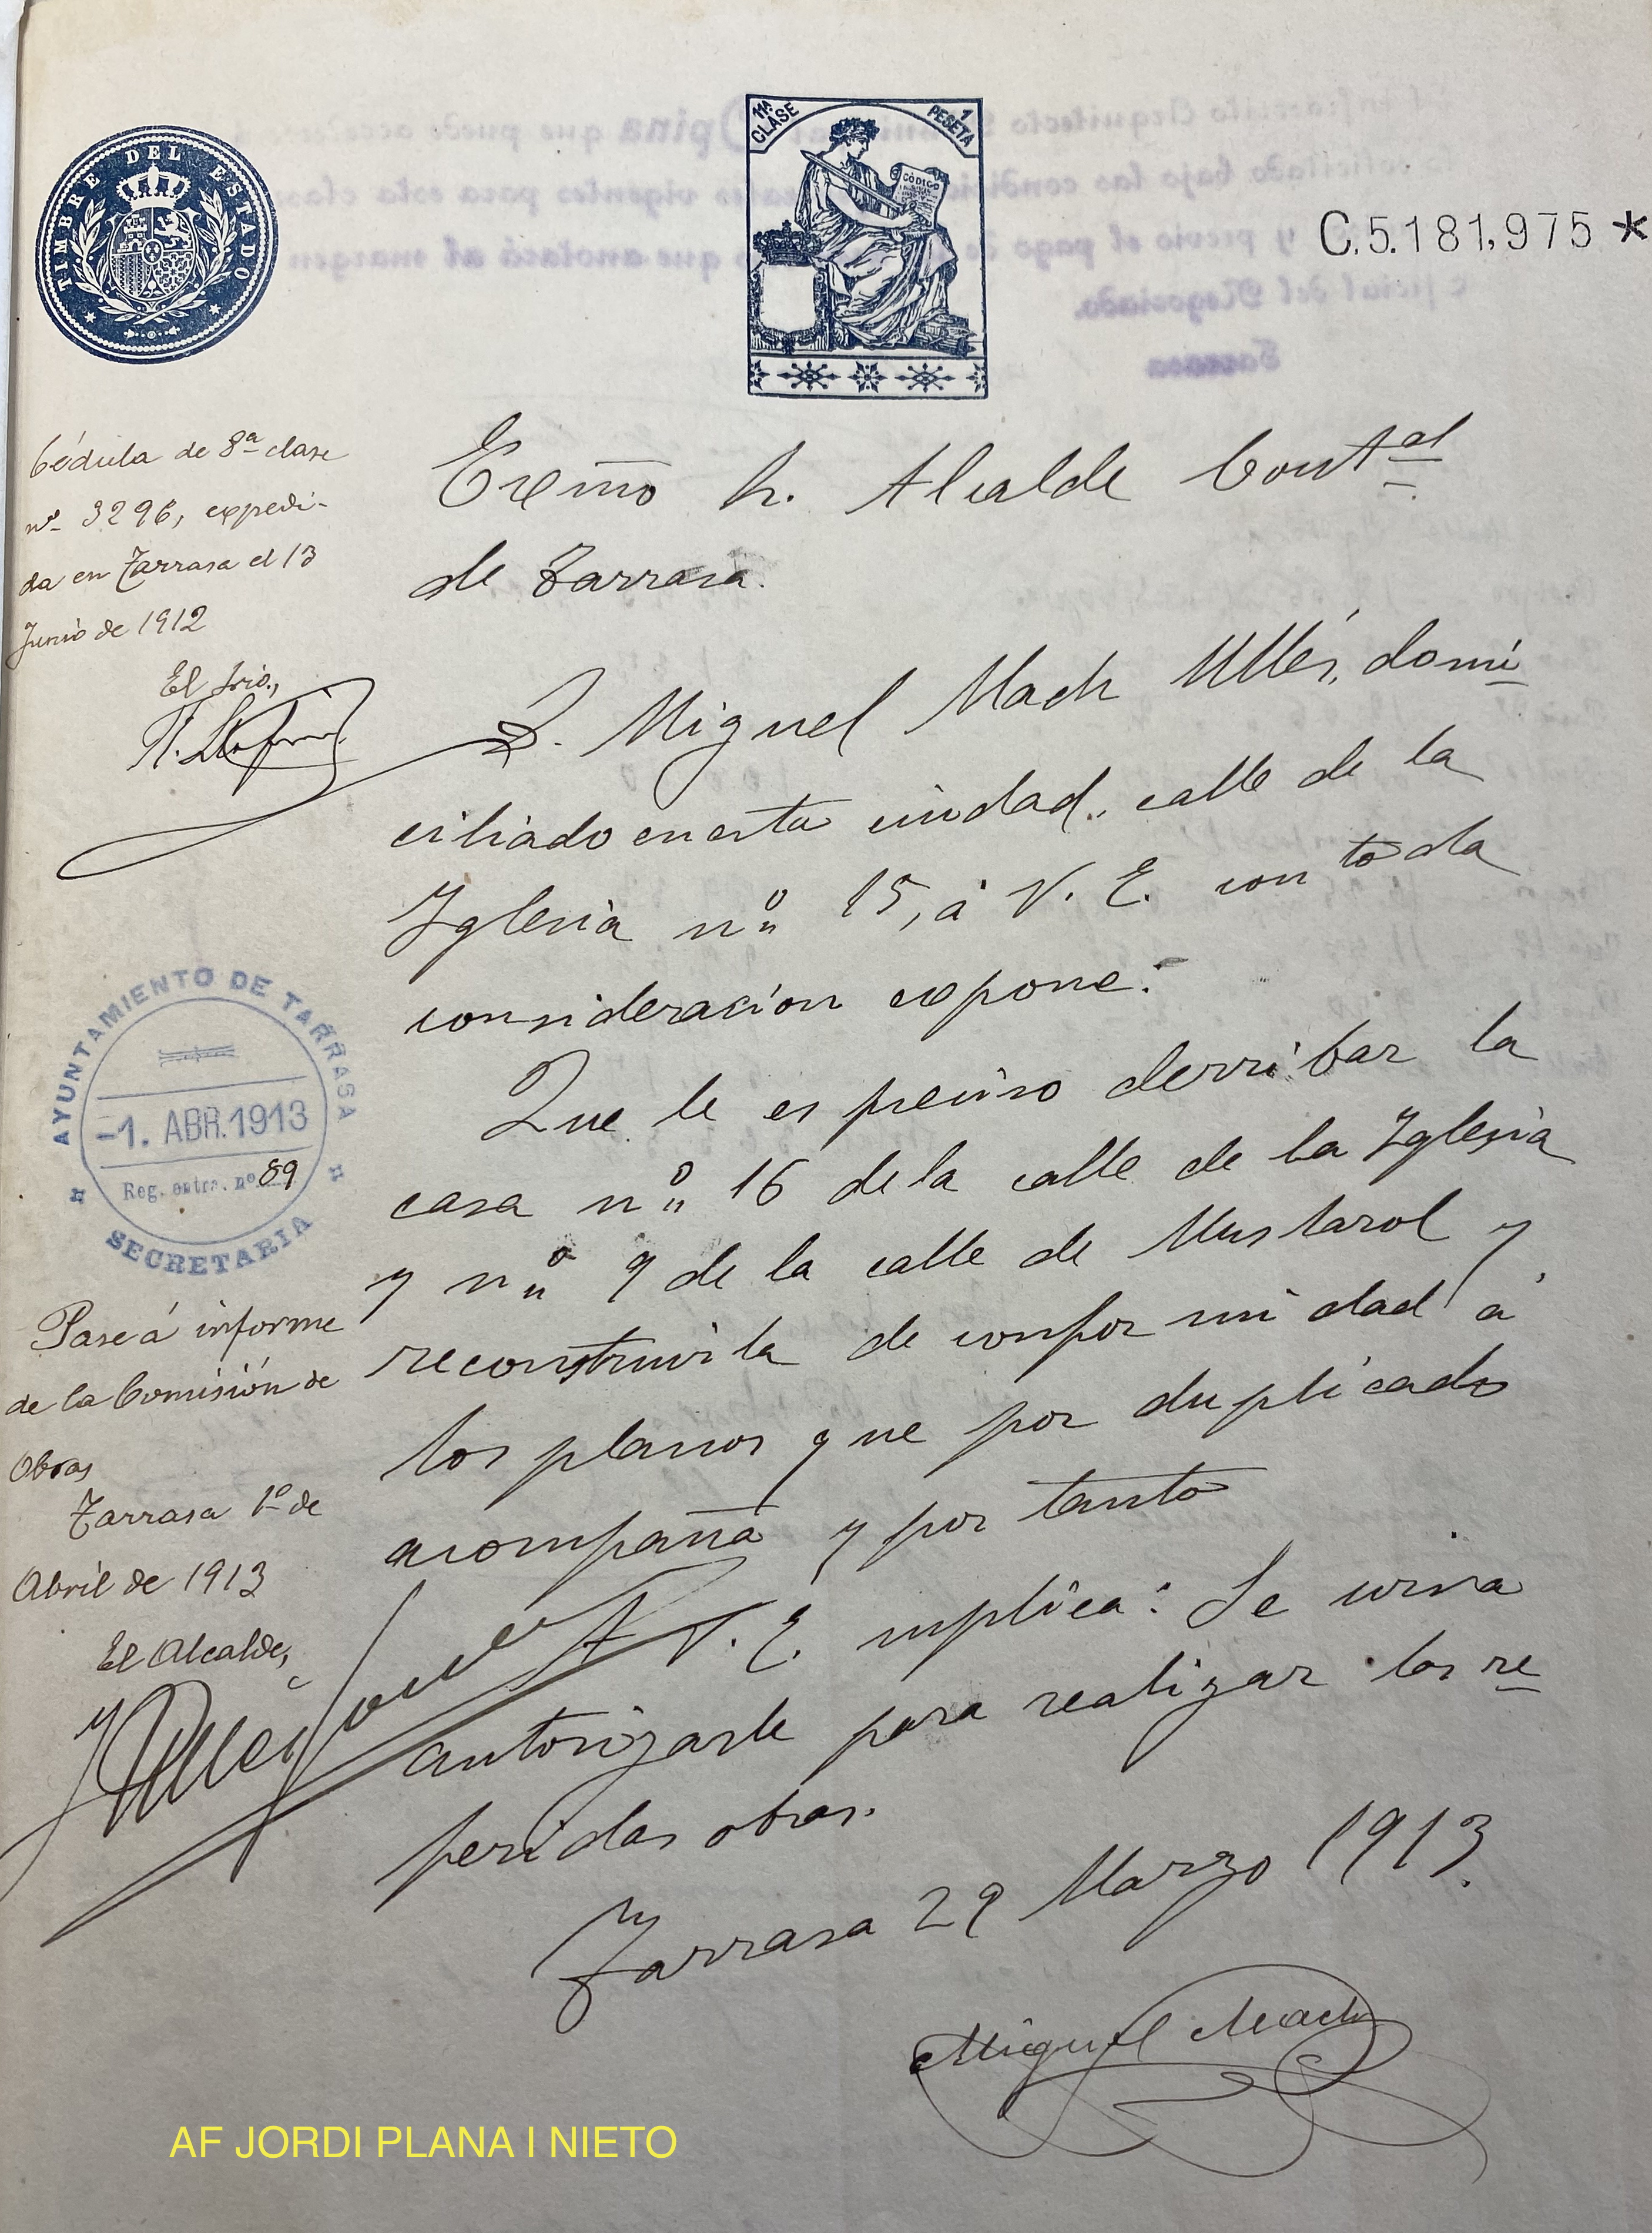 TIMBRE DEL ESTADO
11ª CLASE
1 PESETA
CÓDIGO
C.5.181,975 *
Cédula de 8ª clase
nº 3296, expedi-
da en Tarrasa el 13
Junio de 1912
El Srio.,
Exmo Sr. Alcalde Contal
de Tarrasa.
D. Miguel Mach Ullés, domi
ciliado en esta ciudad, calle de la
Iglesia nº 15, á V. E. con toda
consideracion expone:
Que le es preciso derribar la
casa nº 16 de la calle de la Iglesia
y nº 9 de la calle de Mustarol y
reconstruirla de conformidad á
los planos que por duplicado
acompaña y por tanto
A V. E. suplica: Se sirva
autorizarle para realizar las re
feridas obras.
Tarrasa 29 Marzo 1913.
Miguel Mach
AYUNTAMIENTO DE TARRASA
-1. ABR. 1913
Reg. entra. nº 89
SECRETARIA
Pase á informe
de la Comisión de
Obras
Tarrasa 1º de
Abril de 1913
El Alcalde,
AF JORDI PLANA I NIETO